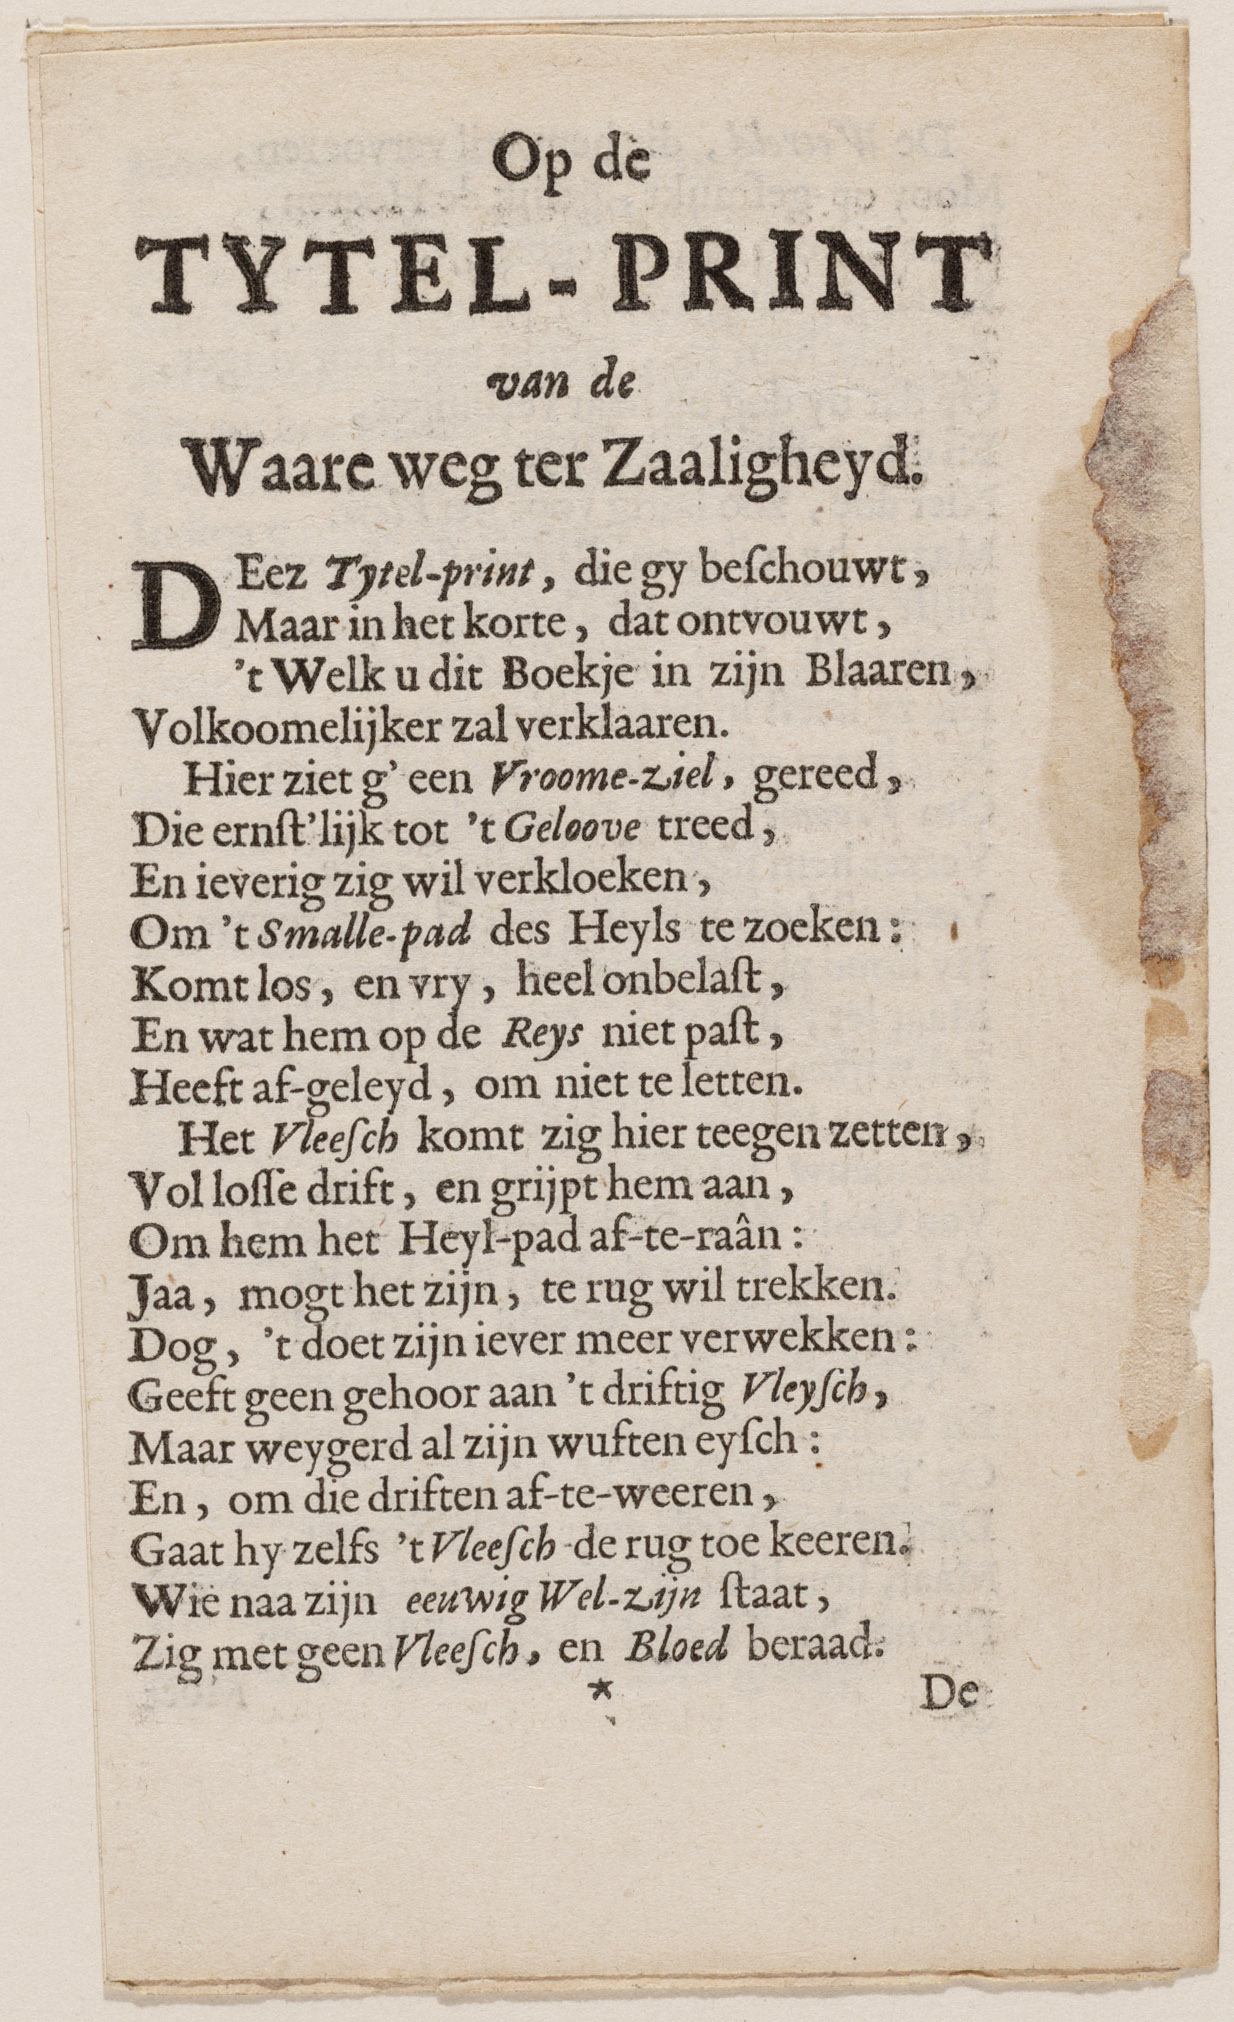 Op de
TYTEL-PRINT
van de
Waare weg ter Zaaligheyd.
DEez Tytel-print, die gy beſchouwt,
Maar in het korte, dat ontvouwt,
't Welk u dit Boekje in zijn Blaaren,
Volkoomelijker zal verklaaren.
Hier ziet g' een Vroome-ziel, gereed,
Die ernſt'lijk tot 't Geloove treed,
En ieverig zig wil verkloeken,
Om 't Smalle-pad des Heyls te zoeken:
Komt los, en vry, heel onbelaſt,
En wat hem op de Reys niet paſt,
Heeft af-geleyd, om niet te letten.
Het Vleeſch komt zig hier teegen zetten,
Vol loſſe drift, en grijpt hem aan,
Om hem het Heyl-pad af-te-raân:
Jaa, mogt het zijn, te rug wil trekken.
Dog, 't doet zijn iever meer verwekken:
Geeft geen gehoor aan 't driftig Vleyſch,
Maar weygerd al zijn wuften eyſch:
En, om die driften af-te-weeren,
Gaat hy zelfs 't Vleeſch de rug toe keeren.
Wie naa zijn eeuwig Wel-zijn ſtaat,
Zig met geen Vleeſch, en Bloed beraad.
* De